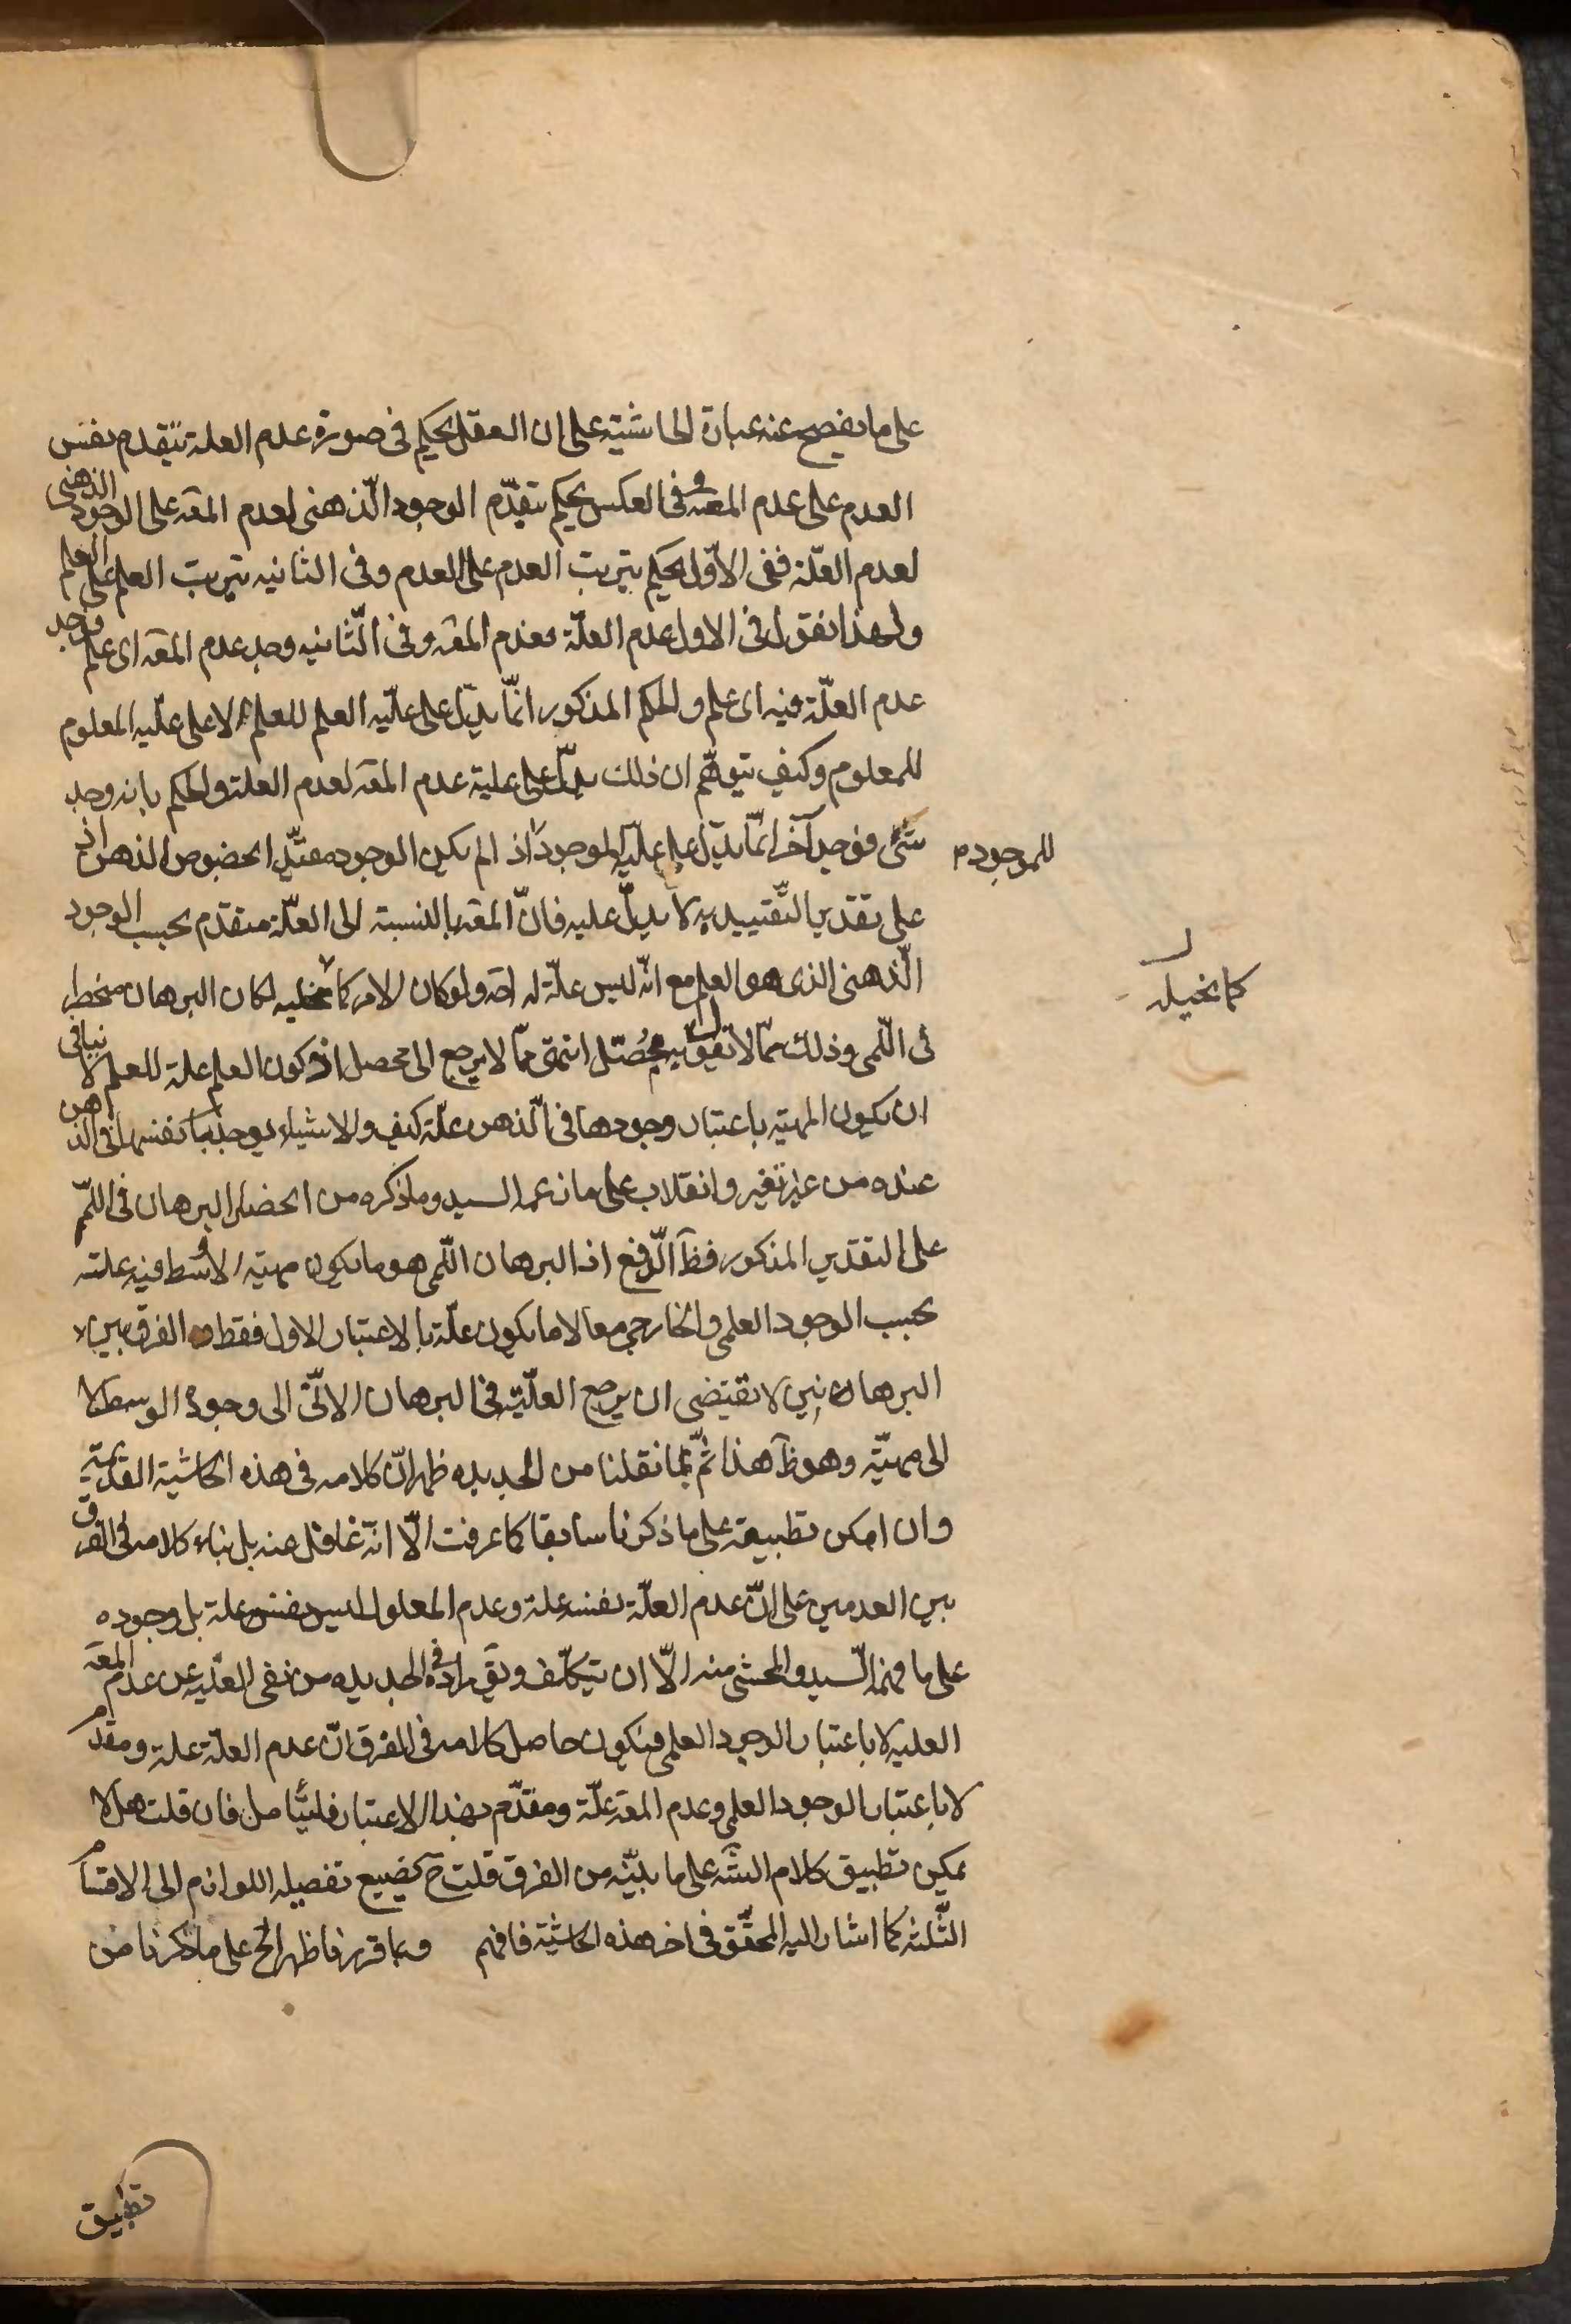 على ما يفصح عنه عبارة الحاشية على ان العقل يحكم فى صورة عدم العلة بتقدم نفس
العدم على عدم المعه وفى العكس يحكم بتقدّم الوجود الّذهنى لعدم المعه على الوجود الذهنى
لعدم العلّة ففى الاوّل يحكم بترتب العدم على العدم وفى الثانيه بترتب العلم على العلم
ولهذا نقول فى الاول عدم العلّة فعدم المعه وفى الّثانيه وجد عدم المعه اى علم فوجد
عدم العلّة فيه اى علم والحكم المذكور انّما يدلّ على علّيه العلم للعلم لا على علّيه المعلوم
للمعلوم وكيف يتوهّم ان ذلك يدلّ على علية عدم المعه لعدم العلة والحكم بانه وجد
شئ فوجد آخر انّما يدلّ على علّيه الموجود اذ الم يكن الوجود مقيّدا بخصوص الذهن اذ
للموجود م
على تقدير التّقييد به لا يدلّ عليه فانّ المعه بالنسبة الى العلّة متقدّم بحسب الوجود
الّذهنى الذى هو العلم مع انّه ليس علّة له احه ولو كان الامر كما تخليه لكان البرهان منحطر
كما تخيله
فى الّلمى وذلك ممّا لا تفوّه به محُصّل انتهى ممّا لا يرجع الى محصل اذ كون العلم علة للعلم لا ينافى
ان يكون المهيّه باعتبار وجودها فى الّذهن علّة كيف والاشياء يوجد بانفسها فى الذهن
عنده من غير تغير وانقلاب على ما زعمه السيد وما ذكره من انحصار البرهان فى اللّم
على التقدير المذكور فظآ الّدفع اذ البرهان اللّمى هو ما يكون مهيّة الاوسط فيه علته
بحسب الوجود العلمى والخارجى معا لا ما يكون علّة بالاعتبار الاول فقط والفرق بين
البرهانين لا يقتضى ان يرجع العلّيّة فى البرهان الانّى الى وجود الوسط لا
الى مهيّة وهو ظآ هذا ثمّ بما نقلنا من الجديده ظهر انّ كلامه فى هذه الحاشية القديمة
وان امكن تطبيقه على ما ذكرنا سابقا كما عرفت الّا انّه غافل عنه بل بناء كلامه فى الفرق
بين العدمين على انّ عدم العلّة نفسه علة وعدم المعلول ليس نفسه علة بل وجوده
على ما فهمه الّسيد والمحشى منه الّا ان يتكلّف ويقآ مراده فى الجديده من نفى العلّيه عن عدم المعه
العليه لا باعتبار الوجود العلمى فيكون حاصل كلامه فى الفرق انّ عدم العلّة علة ومقدم
لا باعتبار الوجود العلمى وعدم المعه علّة ومقدّم بهذا الاعتبار فليتأمل فان قلت هل لا
يمكن تطبيق كلام الشّه على ما بيّنه من الفرق قلت ح يضيع تفصيله اللوازم الى الاقسام
الثّلثه كما اشار اليه المحقّق فى اخر هذه الحاشية فافهم وبما قررنا ظهر الح على ما ذكرنا من
تطبيق